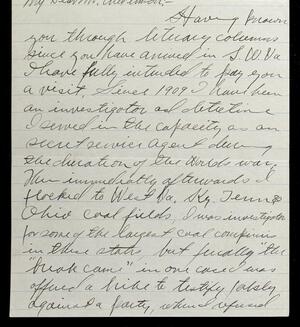 My Dear Mr. Anderson:-
Having known
you through literary columns
since you have arrived in S.W. Va
I have fully intended to pay you
a visit. Since 1909 I have been
an investigator and detective
I served in the capacity as an
secret service agent during
the duration of the Worlds war,
then immediately afterwards I
flocked to West Va, Ky, Tenn &
Ohio coal fields, I was investigator
for some of the largest coal companies
in these states, but finally "the
"break came" in one case I was
offered a bribe to testify falsely
against a party, when I refused